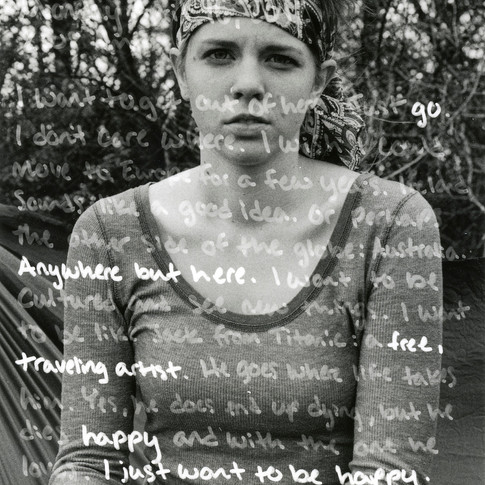 I want to get out of here. Just go.
I don't care where. I wish I could
Move to Europe for a few years. Ireland
Sounds like a good idea. Or perhaps
the other side of the globe: Australia.
Anywhere but here. I want to be
Cultured and see new things. I want
to be like Jack from Titanic: a free,
traveling artist. He goes where life takes
him. Yes, he does end up dying, but he
dies happy and with the one he
loves. I just want to be happy.